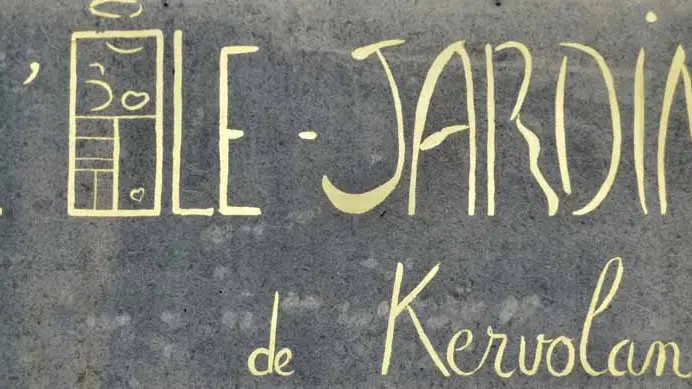 L'ÎLE - JARDIN
de Kervolan